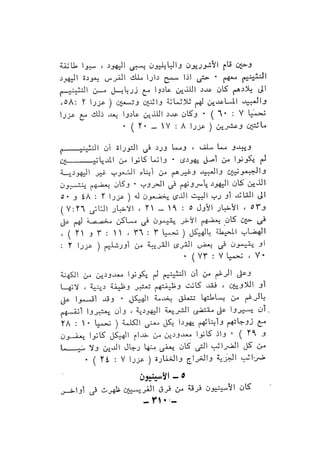 وحين قام الأشوريون والبابليون بسبى اليهود ، سبوا طائفة
النثينيم معهم ٠ حتى اذا سمح دارا ملك الفرس بعودة اليهود
الى بلادهم كان عدد اللذين عادوا مع زربابــل مــن النثينيــم
والعبيد المساعدين لهم ثلاثمائة واثنين وتسعين ( عزرا ٢ : ٥٨،
نحميا ٧ : ٦٠ ) ٠ وكان عدد اللذين عادوا بعد ذلك مع عزرا
مائتين وعشرين ( عزرا ٨ : ١٧ ــ ٢٠ ) ٠
ويبدو مما سلف ، ومما ورد فى التوراة أن النثينيــــــم
لم يكونوا من أصل يهودى ٠ وانما كانوا من المديانيــــــــين
والجبعونيين والعبيد وغيرهم من أبناء الشعوب غير اليهوديــة
الذين كان اليهود يأسرونهم فى الحروب ٠ وكان بعضهم ينتسبون
الى القائد أو رب البيت الذى يخضعون له ( عزرا ٢ : ٤٨ و ٥٠
و ٥٣ ، الأخبار الأول ٥ : ١٩ ــ ٢١ ، الاخبار الثانى ٢٦ : ٧ )
فى حين كان بعضهم الآخر يقيمون فى مساكن مخصصة لهم على
الهضاب المحيطة بالهيكل ( نحميا ٣ : ٣٦ ، ١١ : ٣ و ٢١ ) ،
او يقيمون فى بعض القرى القريبة من أورشليم ( عزرا ٢ :
٧٠ ، نحميا ٧ : ٧٣ ) ٠
وعلى الرغم من أن النثينيم لم يكونوا معدودين من الكهنة
أو اللاويين ، فقد كانت وظيفتهم تعتبر وظيفة دينية ، لانهــا
بالرغم من بساطتها تتعلق بخدمة الهيكل ٠ وقد أقسموا على
أن يسيروا على مقتضى الشريعة اليهودية ، وأن يعتبروا أنفسهم
مع زوجاتهم وأبنائهم يهودا بكل معنى الكلمة ( نحميا ١٠ : ٢٨
و ٢٩ ) ٠ واذ كانوا معدودين من خدام الهيكل كانوا يعفــون
من كل الضرائب التى كان يعفى منها رجال الدين ولا سيــــما
ضرائب الجزية والخراج والخفارة ( عزرا ٧ : ٢٤ ) ٠
٥ ــ الأسينيون
كان الأسينيون فرقة من فرق الفريسيين ظهرت فى أواخــر
ــ ٣١٠ ــ